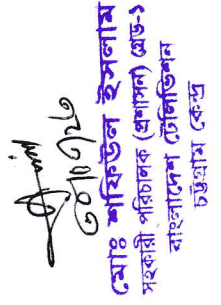 ৩০/৬/২৩
মোঃ শফিউল ইসলাম
সহকারী পরিচালক (প্রশাসন) গ্রেড-১
বাংলাদেশ টেলিভিশন
চট্টগ্রাম কেন্দ্র